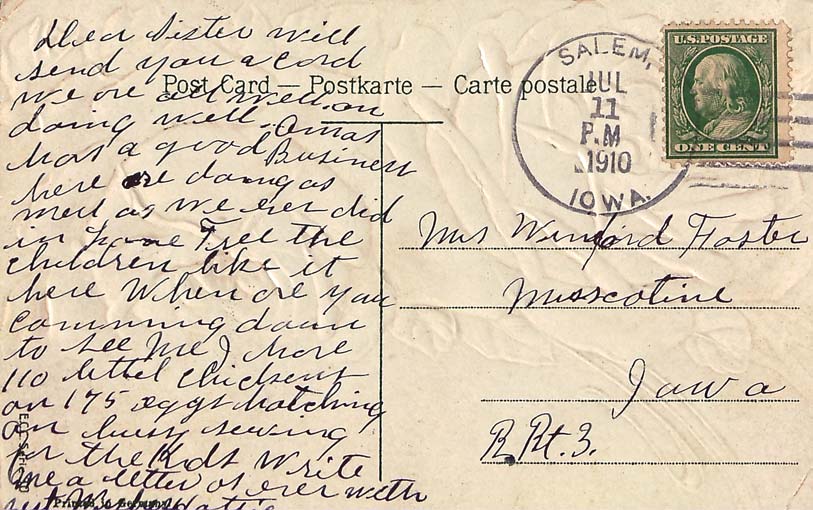 Dear Sister will
send you a cord
we are all well an
doing well. Omar
has a good Business
here are doing as
well as we ever did
in Lone Tree the
children like it
here When are you
comming down
to see me I have
110 littel chickens
an 175 eggs hatching
am busy sewing
for the Kids Write
me a letter as ever with
Post Card — Postkarte — Carte postale
SALEM,
JUL
11
P.M
1910
IOWA.
U.S. POSTAGE
ONE CENT
Mrs Winford Foster
Muscotine
Iowa
R Rt. 3.
Printed in Germany